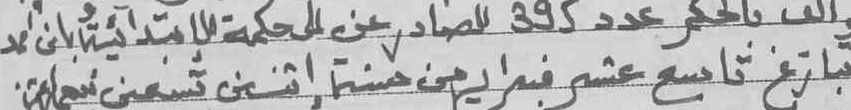 والف بالحكم عدد 395 الصادر عن المحكمة الابتدائية بانه قد
بتاريخ تاسع عشر فبراير من سنة اثنين تسعين تسعمائة